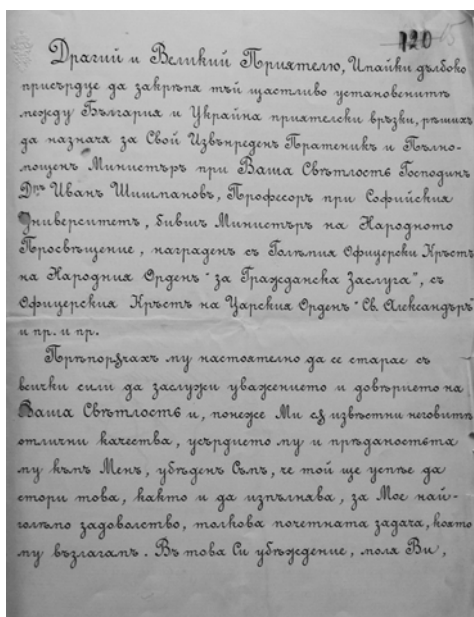 120
Драгий и Великий Приятелю, Имайки дълбоко
присърдце да закрѣпѧ тъй щастливо установенитѣ
между България и Украйна приятелски врѣзки, рѣшихъ
да назнача за Свой Извънреденъ Пратеникъ и Пълно-
мощенъ Министъръ при Ваша Свѣтлость Господинъ
Д-ръ Иванъ Шишмановъ, Професоръ при Софийския
Университетъ, бившъ Министъръ на Народното
Просвѣщение, награденъ съ Голѣмия Офицерски Кръстъ
на Народния Орденъ "за Гражданска Заслуга", съ
Офицерския Кръстъ на Царския Орденъ "Св. Александъръ"
и пр. и пр.
Прѣпорѫчахъ му настоятелно да се старае съ
всички сили да заслужи уважението и довѣрието на
Ваша Свѣтлость и, понеже Ми сѫ извѣстни неговитѣ
отлични качества, усърдието му и прѣданостьта
му къмъ Менъ, убѣденъ Съмъ, че той ще успѣе да
стори това, както и да изпълнава, за Мое най-
голѣмо задоволство, толкова почетната задача, която
му възлагамъ. Въ това Си убѣждение, моля Ви,